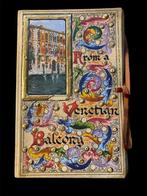 From a
Venetian
Balcony